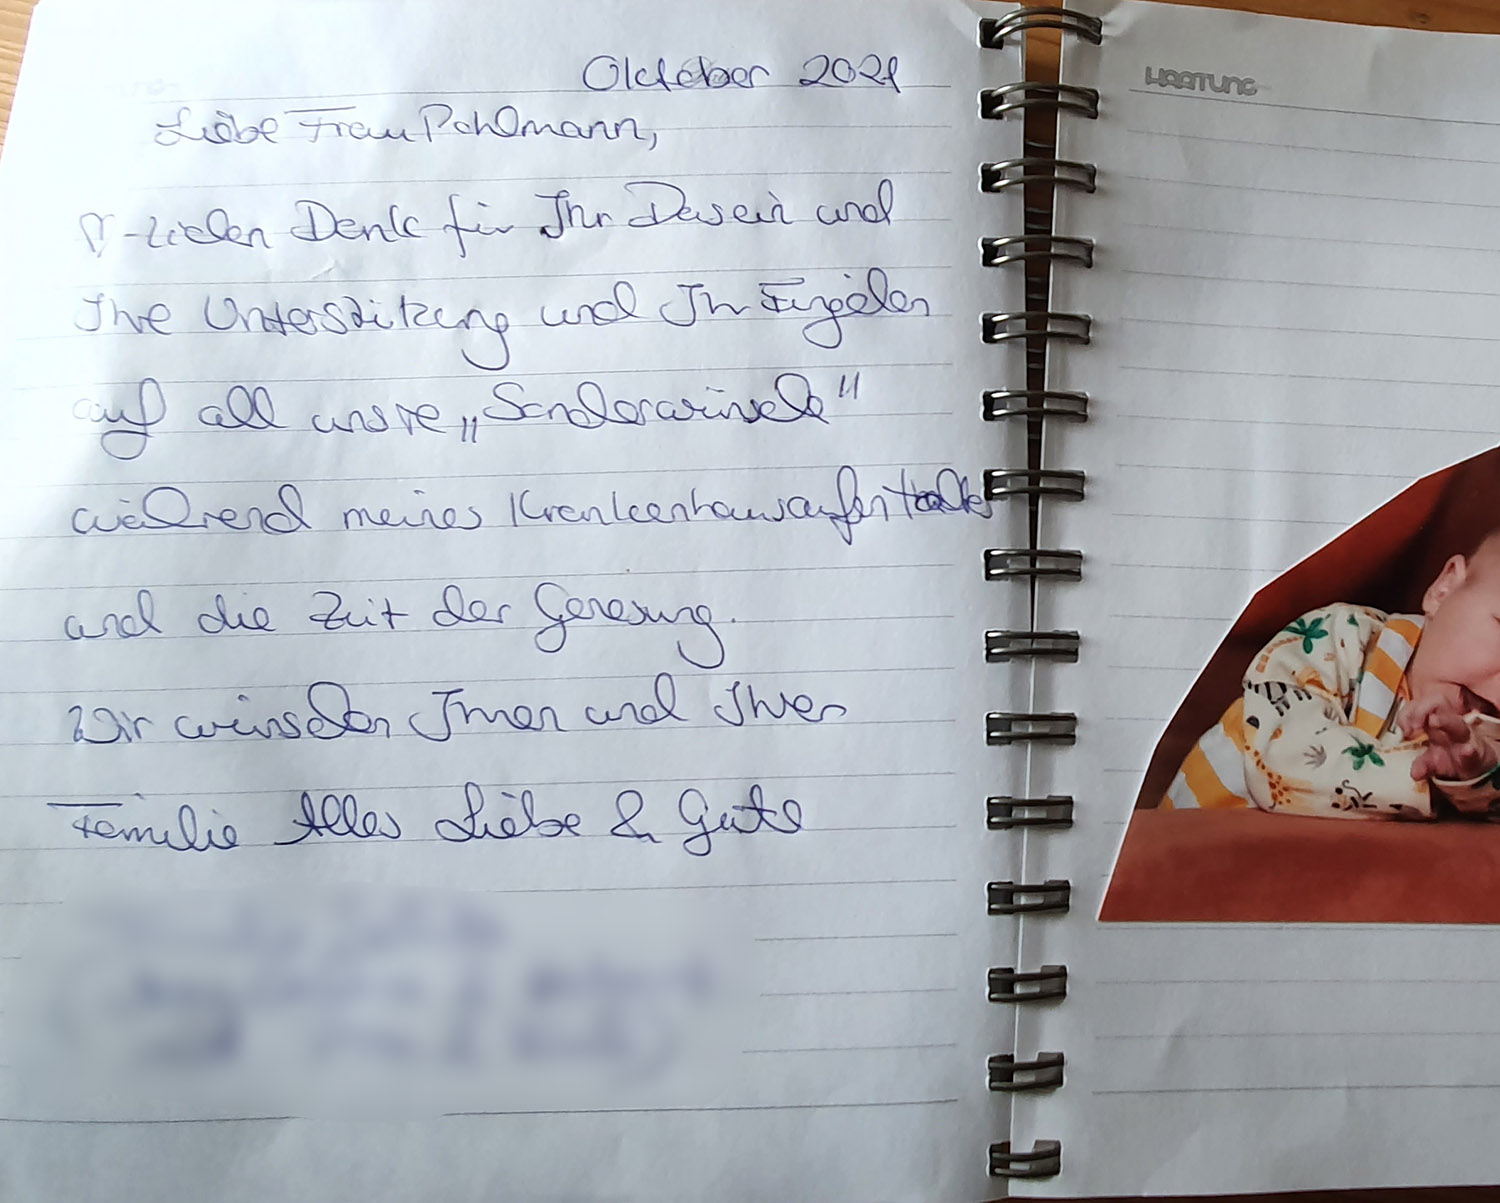 Oktober 2021
Liebe Frau Pohlmann,
♡-lichen Dank für Ihr Dasein und
Ihre Unterstützung und Ihr Eingehen
auf all unsre „Sonderwünsche"
während meines Krankenhausaufenthaltes
und die Zeit der Genesung.
Wir wünschen Ihnen und Ihrer
Familie Alles Liebe & Gute
HARTUNG